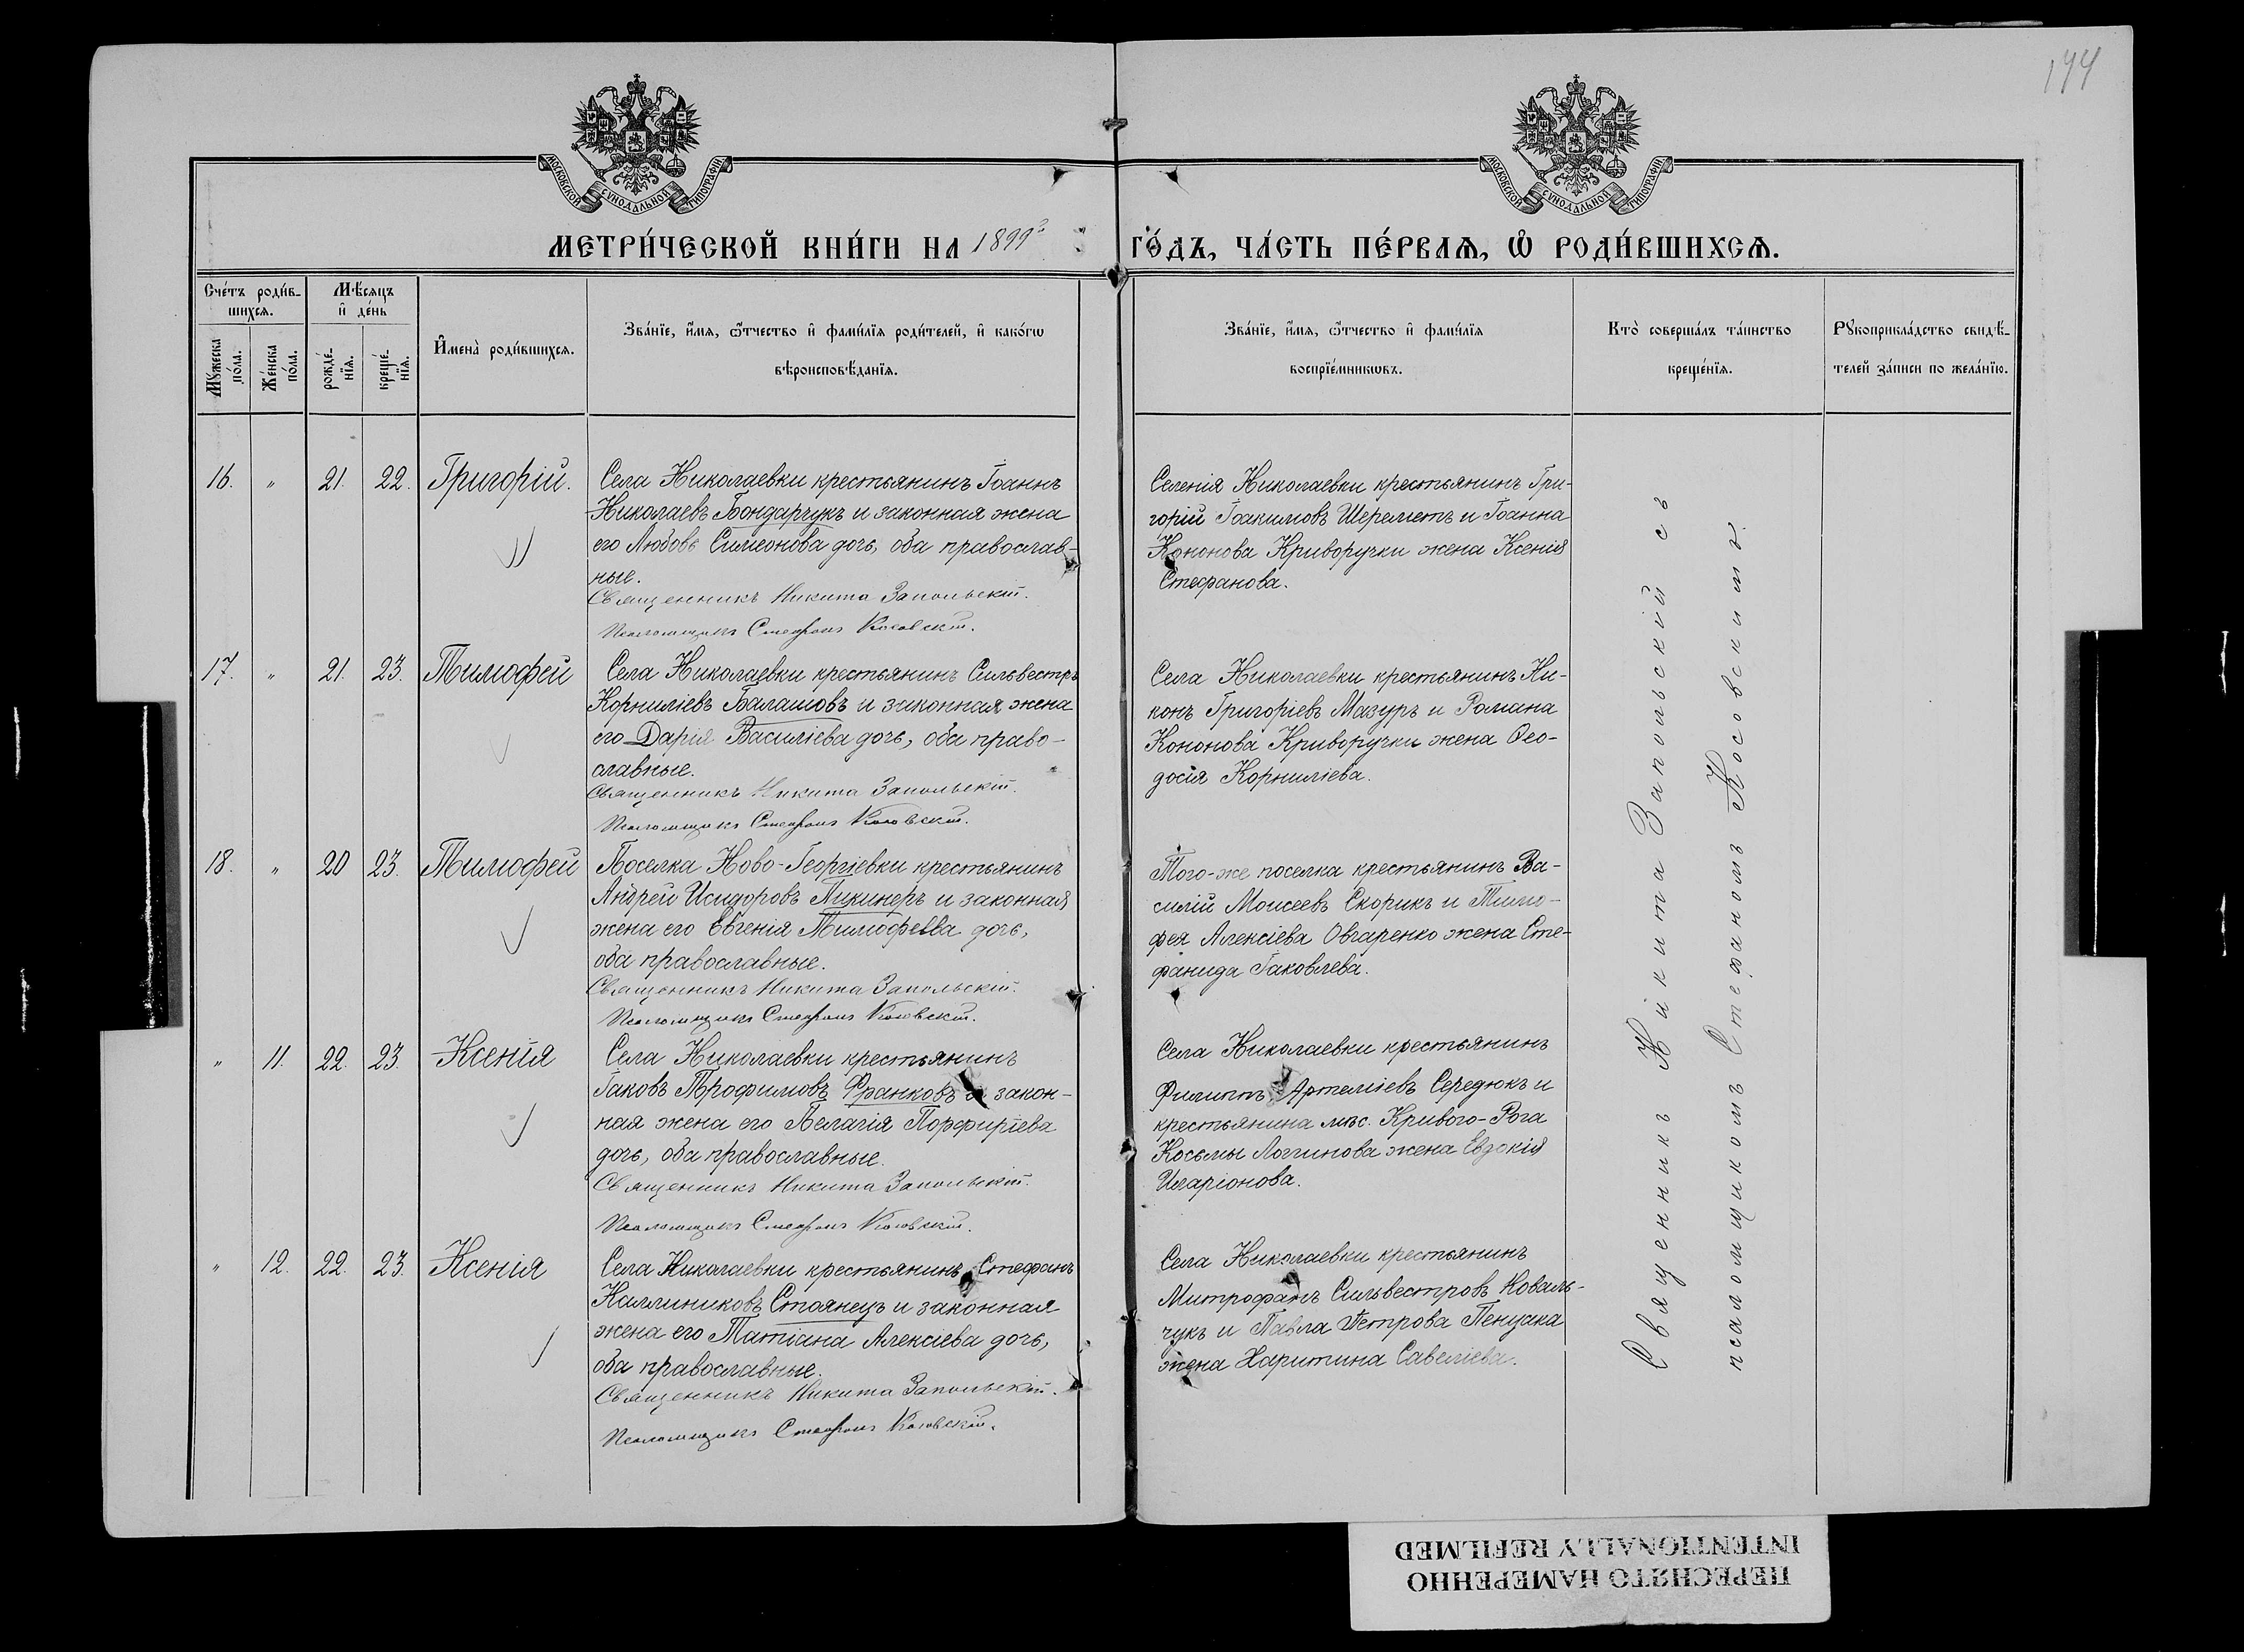 144
МОСКОВСКОЙ СѴНОДАЛЬНОЙ ТИПОГРАФІИ
МОСКОВСКОЙ СѴНОДАЛЬНОЙ ТИПОГРАФІИ
МЕТРИ́ЧЕСКОЙ КНИ́ГИ НА 1899 го́дъ, ча́сть пе́рваѧ, ѽ роди́вшихсѧ.
Сче́тъ роди́в-
шихсѧ.
Мѣ́сяцъ
и҆ де́нь
Мꙋ́жеска
по́ла.
Же́нска
по́ла.
рожде́-
нїѧ.
креще́-
нїѧ.
И҆мена̀ роди́вшихсѧ.
Зва́нїе, и҆́мѧ, ѻ҆́тчество и҆ фами́лїѧ роди́телей, и҆ како́гѡ
вѣроисповѣ́данїѧ.
Зва́нїе, и҆́мѧ, ѻ҆́тчество и҆ фами́лїѧ
воспрїе́мникѡвъ.
Кто̀ соверша́лъ та́инство
креще́нїѧ.
Рꙋкоприкла́дство свидѣ́-
телей за́писи по жела́нїю.
16. " 21. 22. Григорій.
Села Николаевки крестьянинъ Іоаннъ
Николаевъ Бондарчукъ и законная жена
его Любовь Симеонова дочь, оба православ-
ные.
Священникъ Никита Запольскій.
Псаломщикъ Стефанъ Косовскій.
Селенія Николаевки крестьянинъ Гри-
горій Іоакимовъ Шереметъ и Іоанна
Кононова Криворучки жена Ксенія
Стефанова.
17. " 21. 23. Тимофей
Села Николаевки крестьянинъ Сильвестръ
Корниліевъ Балашовъ и законная жена
его Дарія Василіева дочь, оба право-
славные.
Священникъ Никита Запольскій.
Псаломщикъ Стефанъ Косовскій.
Села Николаевки крестьянинъ Ни-
конъ Григоріевъ Мазуръ и Романа
Кононова Криворучки жена Ѳео-
досія Корниліева.
18. " 20 23. Тимофей
Поселка Ново-Георгіевки крестьянинъ
Андрей Исидоровъ Пикинеръ и законная
жена его Евгенія Тимофеева дочь,
оба православные.
Священникъ Никита Запольскій.
Псаломщикъ Стефанъ Косовскій.
Того-же поселка крестьянинъ Ва-
силій Моисеевъ Скорикъ и Тимо-
фея Алексіева Овчаренко жена Сте-
фанида Іаковлева.
" 11. 22. 23. Ксенія
Села Николаевки крестьянинъ
Іаковъ Трофимовъ Франковъ и закон-
ная жена его Пелагія Порфиріева
дочь, оба православные.
Священникъ Никита Запольскій.
Псаломщикъ Стефанъ Косовскій.
Села Николаевки крестьянинъ
Филиппъ Артеміевъ Середюкъ и
крестьянина мѣс. Кривого-Рога
Косьмы Логгинова жена Евдокія
Иларіонова.
" 12. 22. 23. Ксенія
Села Николаевки крестьянинъ Стефанъ
Каллиниковъ Стоянецъ и законная
жена его Татіана Алексіева дочь,
оба православные.
Священникъ Никита Запольскій.
Псаломщикъ Стефанъ Косовскій.
Села Николаевки крестьянинъ
Митрофанъ Сильвестровъ Коваль-
чукъ и Павла Петрова Пенцака
жена Харитина Савеліева.
Священникъ Никита Запольскій съ
псаломщикомъ Стефаномъ Косовскимъ.
ПЕРЕСНЯТО НАМЕРЕННО
INTENTIONALLY REFILMED